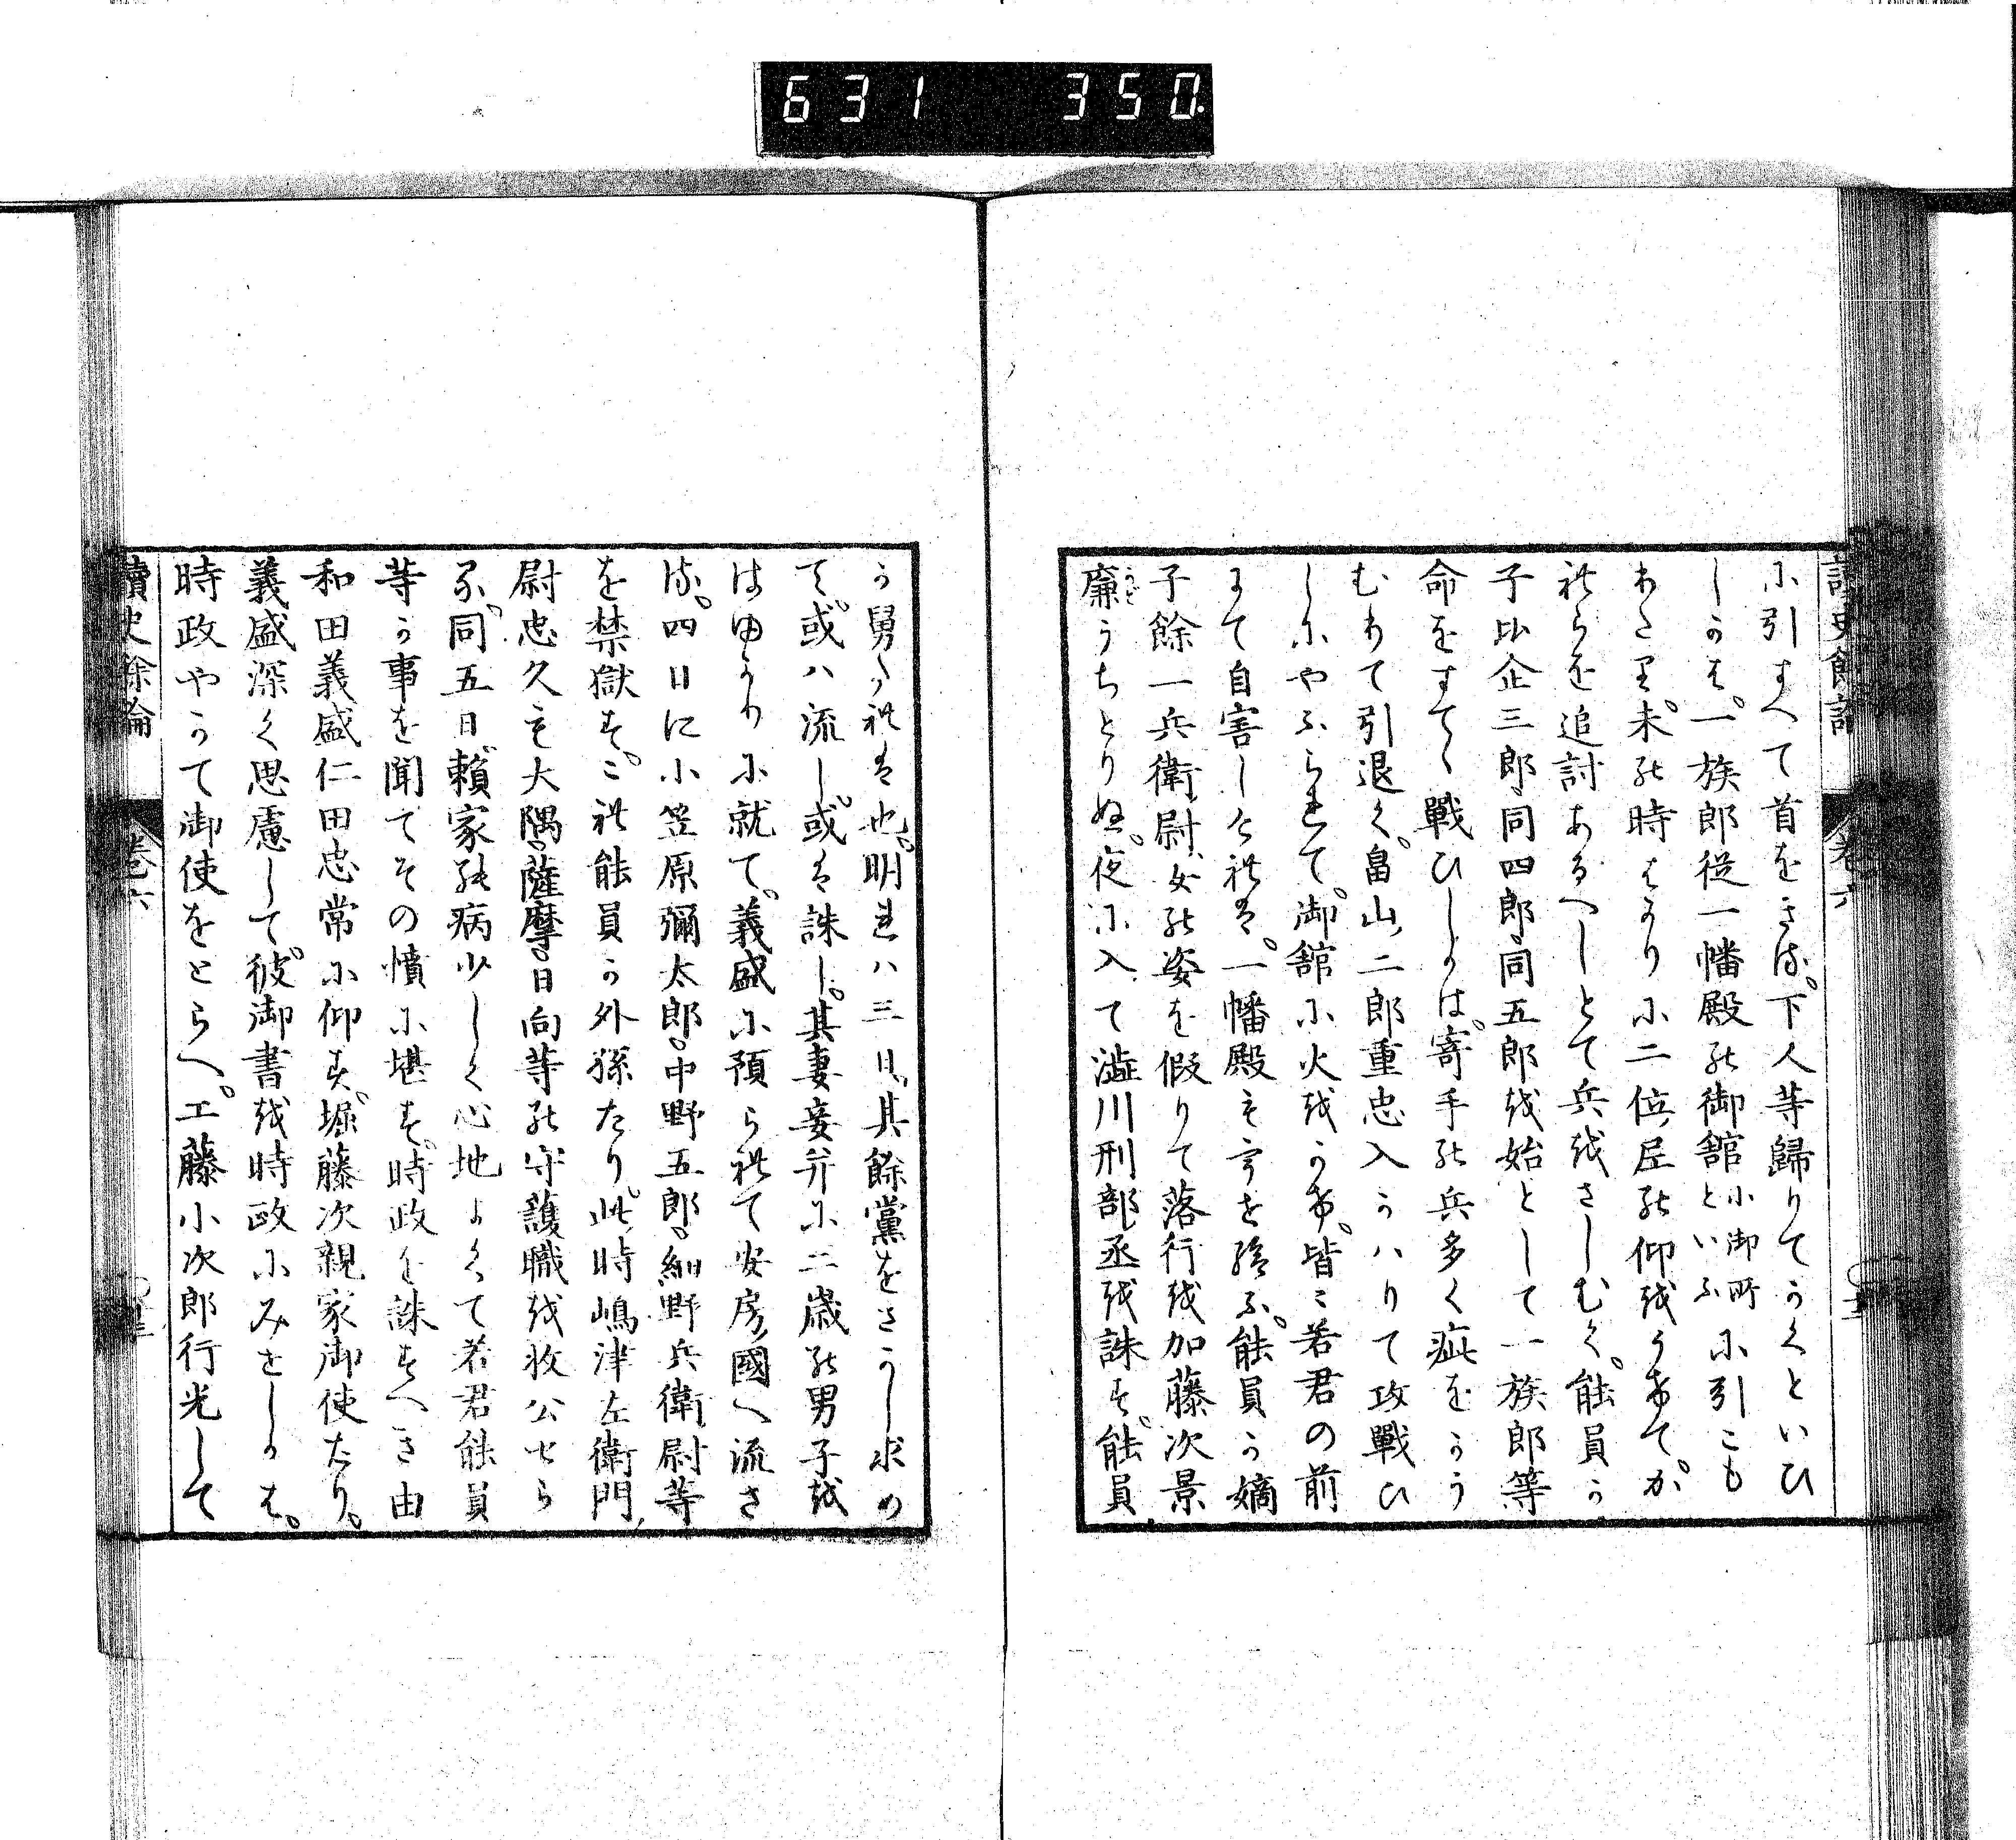 631 350
讀史餘論 卷六
に引すへて首をきる。下人等歸りてかくといひ
しかは。一族郎従一幡殿の御舘小御所といふに引こも
わたる。未の時はかりに二位尼の仰をうけて。か
れらを追討あるへしとて兵をさしむく。能員か
子比企三郎同四郎同五郎を始として一族郎等
命をすてゝ戰ひしかは。寄手の兵多く疵をかう
むりて引退く。畠山二郎重忠入かハりて攻戰ひ
しにやふられて。御舘に火をかけ。皆々若君の前
にて自害しけれは。一幡殿も害を給ふ。能員か嫡
子餘一兵衛尉女の姿を假りて落行を加藤次景
廉うちとりぬ。夜に入て澁川刑部丞を誅す。能員
か舅たれは也。明れハ三日其餘黨をさかし求め
て。或ハ流し。或は誅し。其妻妾并に二歳の男子を
はゆかりに就て。義盛に預られて安房國へ流さ
る。四日に小笠原彌太郎。中野五郎。細野兵衛尉等
を禁獄す。これ能員か外孫たり。此時嶋津左衛門
尉忠久も大隅。薩摩。日向等の守護職を收公せら
る。同五日賴家の病少しく心地よくて若君能員
等か事を聞てその憤に堪す。時政を誅すへき由
和田義盛仁田忠常に仰す。堀藤次親家御使たり。
義盛深く思慮して。彼御書を時政にみせしかは。
時政やかて御使をとらへ。工藤小次郎行光して
讀史餘論 卷六